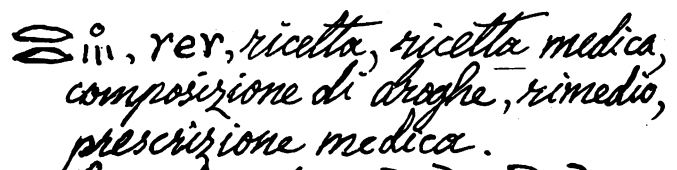 , rer, ricetta, ricetta medica,
composizione di droghe, rimedio,
prescrizione medica.